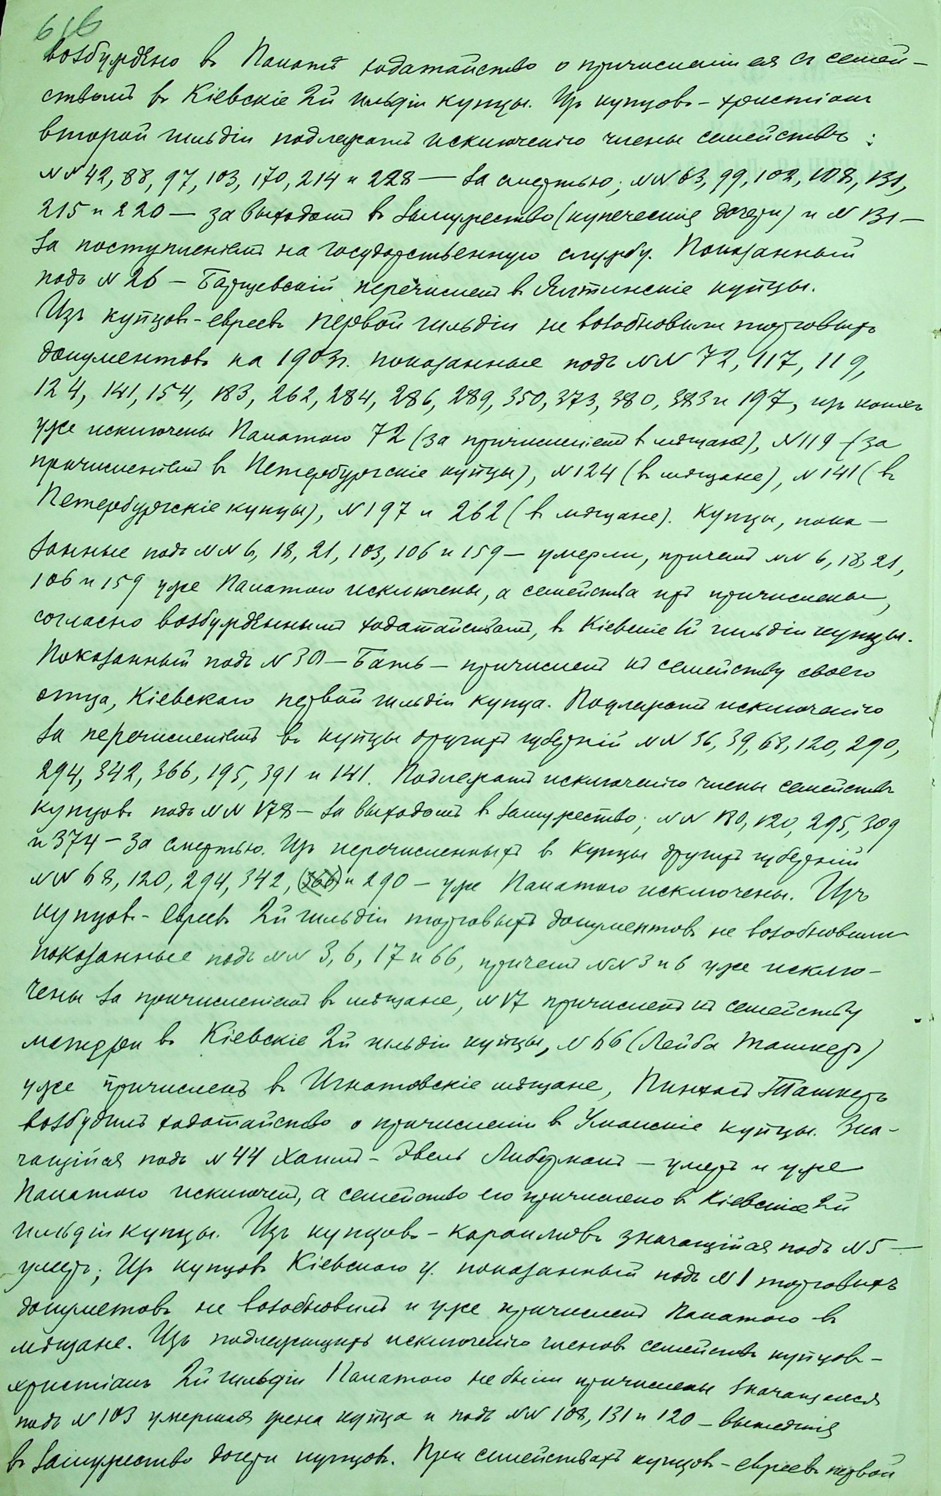 616
возбуждено в Палатѣ ходатайство о причисленіи ея съ семей-
ствомъ в Кіевскіе 2й гильдіи купцы. Изъ купцовъ-христіанъ
второй гильдіи подлежатъ исключенію члены семействъ:
№№ 42, 88, 97, 103, 170, 214 и 228 — за смертью; №№ 63, 99, 102, 108, 131,
215 и 220 — за выходомъ в замужество (купеческія дочери) и № 131 —
за поступленіемъ на государственную службу. Показанный
подъ № 26 — перечисленъ в Ялтинскіе купцы.
Изъ купцовъ-евреевъ первой гильдіи не возобновили торговыхъ
документовъ на 1903г. показанные подъ №№ 72, 117, 119,
124, 141, 154, 183, 262, 284, 286, 289, 350, 373, 380, 383 и 197, изъ коихъ
уже исключены Палатою 72 (за причисленіемъ в мѣщане), №119 (за
причисленіемъ в Петербургскіе купцы), №124 (в мѣщане), №141 (в
Петербургскіе купцы), №197 и 262 (в мѣщане). Купцы, пока-
занные подъ №№ 6, 18, 21, 103, 106 и 159 — умерли, причемъ №№ 6, 18, 21,
106 и 159 уже Палатою исключены, а семейства ихъ причислены,
согласно возбужденнымъ ходатайствамъ, в Кіевскіе гильдіи купцы.
Показанный подъ № 30 — — причисленъ къ семейству своего
отца, Кіевскаго первой гильдіи купца. Подлежатъ исключенію
за перечисленіемъ в купцы другихъ губерній №№ 36, 39, 68, 120, 290,
294, 342, 366, 195, 391 и 141. Подлежатъ исключенію члены семействъ
купцовъ подъ №№ 178 — за выходомъ в замужество; №№ 120, 295, 309
и 374 — за смертью. Изъ перечисленныхъ в купцы другихъ губерній
№№ 68, 120, 294, 342, и 290 — уже Палатою исключены. Изъ
купцовъ-евреевъ 2й гильдіи торговыхъ документовъ не возобновили
показанные подъ №№ 3, 6, 17 и 66, причемъ №№ 3 и 6 уже исклю-
чены за причисленіемъ в мѣщане, №17 причисленъ къ семейству
матери в Кіевскіе 2й гильдіи купцы, №66 (Лейба Ташкеръ)
уже причисленъ в Игнатовскіе мѣщане, Пинхасъ Ташкеръ
возбудилъ ходатайство о причисленіи в Уманскіе купцы. Зна-
чащійся подъ №44 Хаимъ- Либерманъ — умеръ и уже
Палатою исключенъ, а семейство его причислено в Кіевскіе 2й
гильдіи купцы. Изъ купцовъ-караимовъ значащійся подъ №5 —
умеръ; Изъ купцовъ Кіевскаго у. показанный подъ №1 торговыхъ
документовъ не возобновилъ и уже причисленъ Палатою в
мѣщане. Изъ подлежащихъ исключенію членовъ семействъ купцовъ-
христіанъ 2й гильдіи Палатою не были причислены значащіеся
подъ №103 умершая жена купца и подъ №№ 108, 131 и 120 — вышедшія
в замужество дочери купцовъ. При семействахъ купцовъ-евреевъ первой